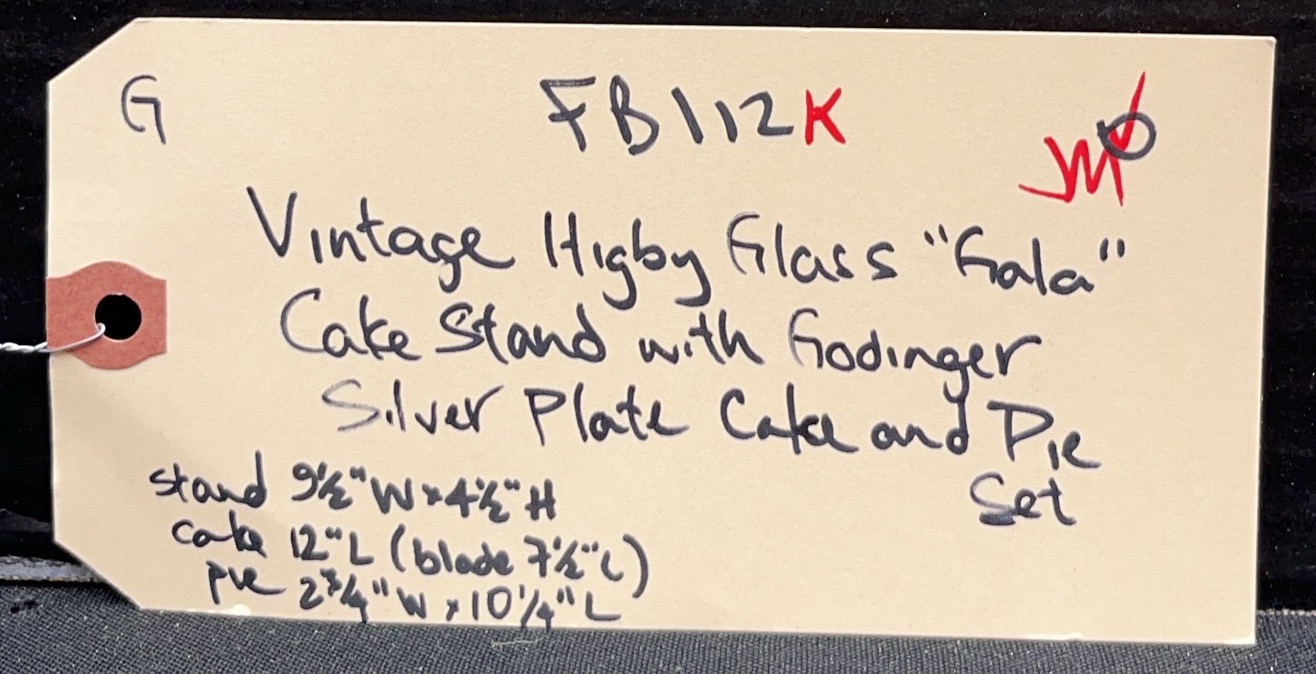 G
FB112K
JM
Vintage Higby Glass "Gala"
Cake Stand with Godinger
Silver Plate Cake and Pie
Set
stand 9½" W x 4½" H
cake 12" L (blade 7½" L)
pie 2¾" W x 10¼" L